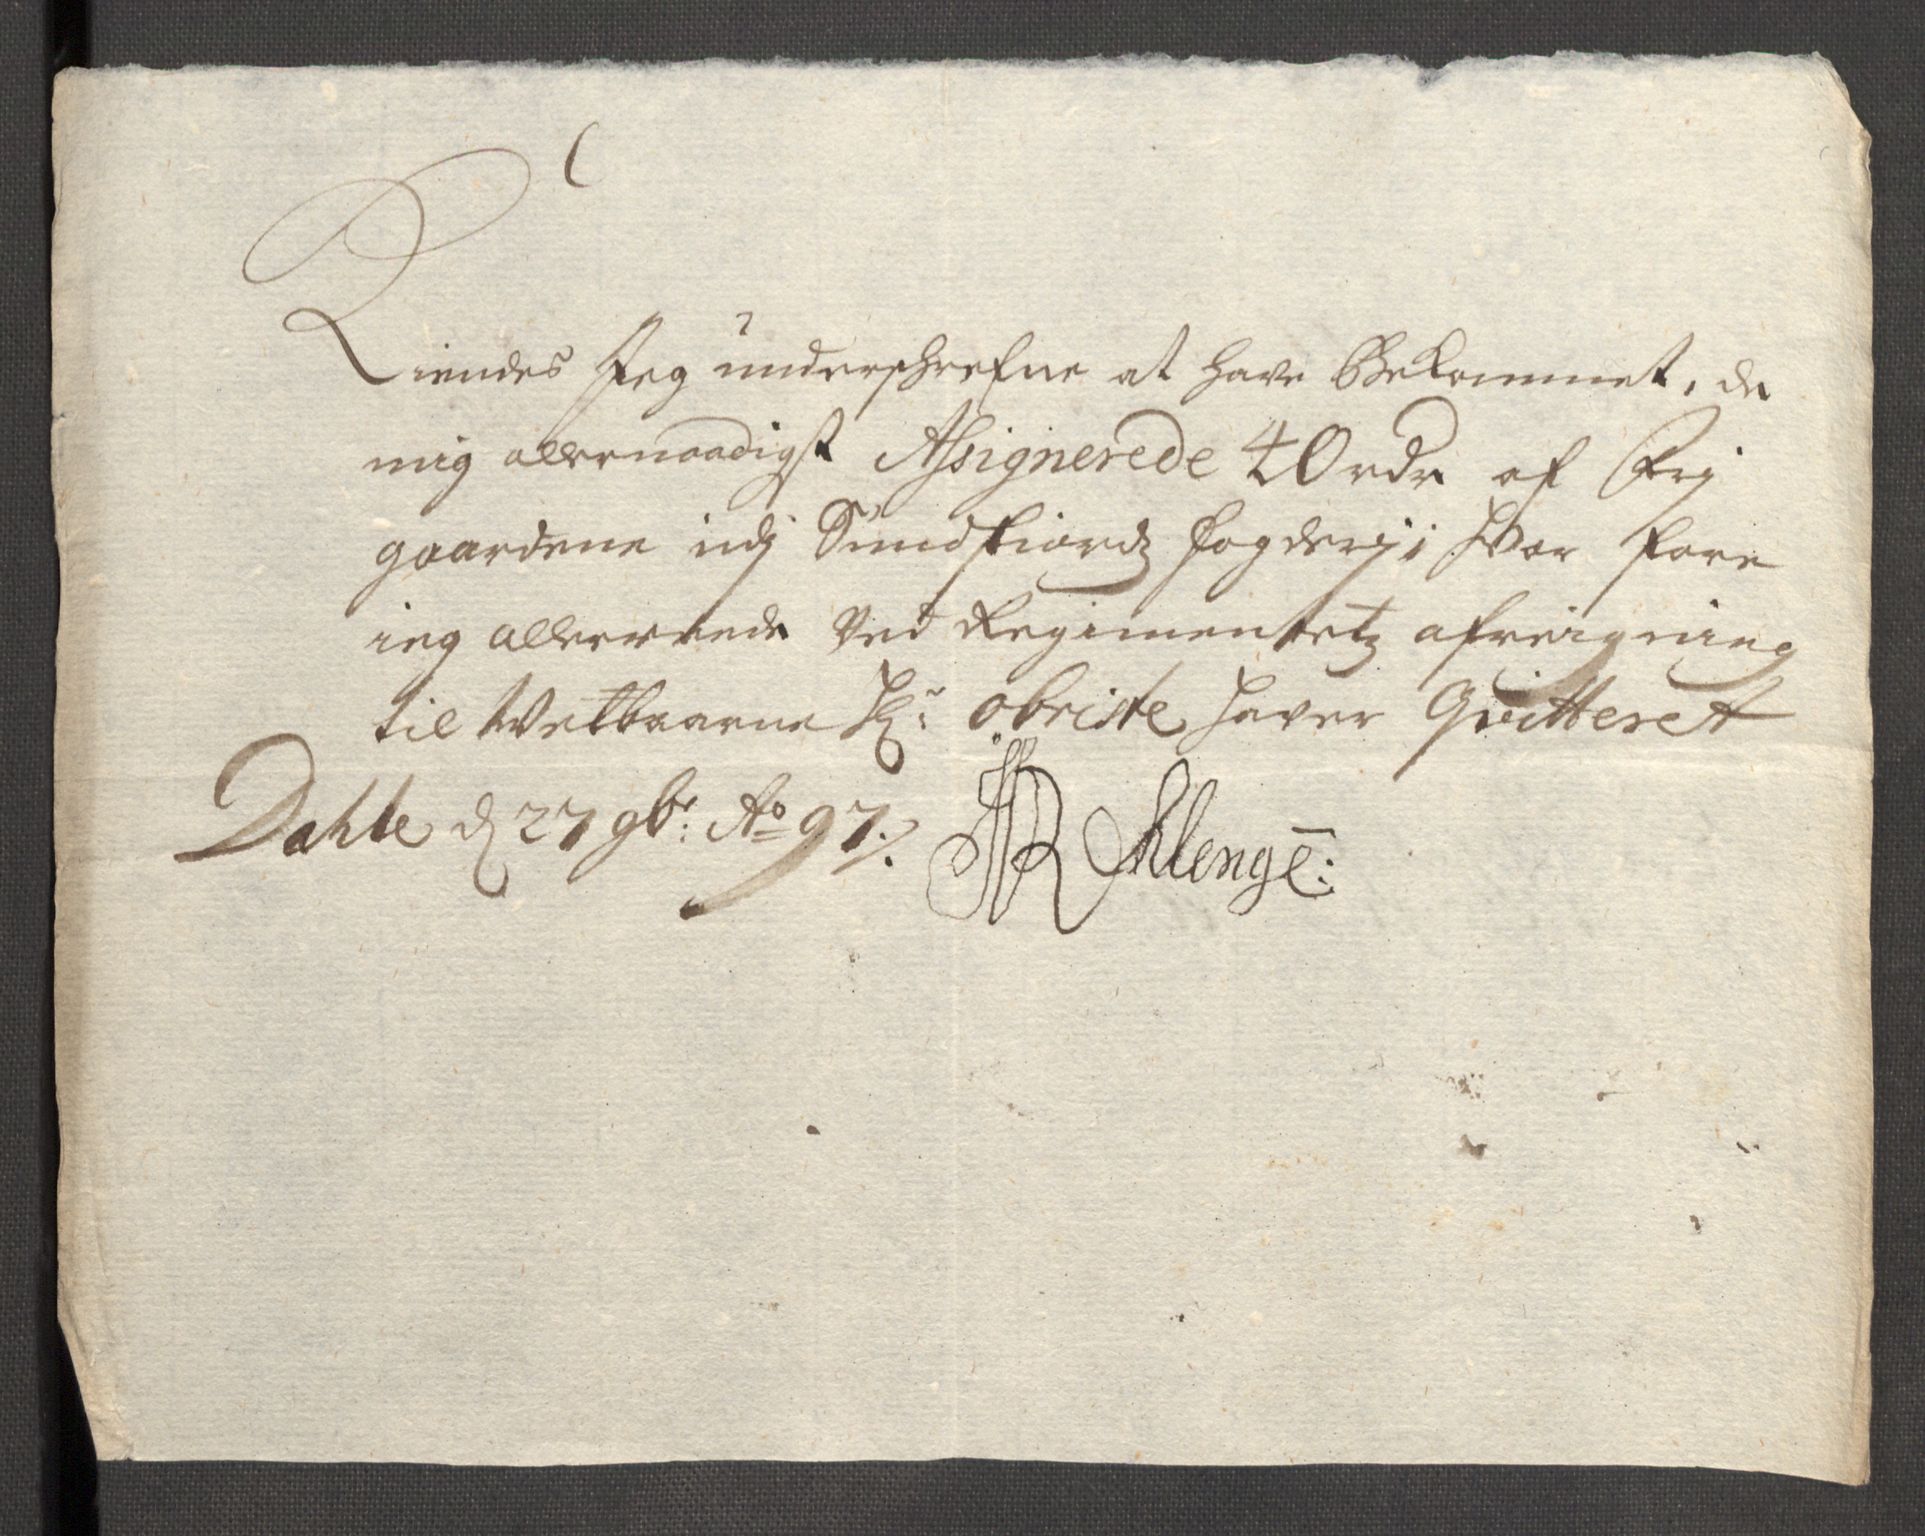 Kiendes Jeg underschrefne at have Bekommet, de
mig allernaadigst Assignerede 40 rdr af Frj
gaardene udj Sundfiords fogderj; hvor fore
ieg allerrede ved Regimentetz afreigning
til Welbaarne Hr: obriste haver Qvitteret
Dahle d 27 9br: Ao 97.
JHR Klenge: